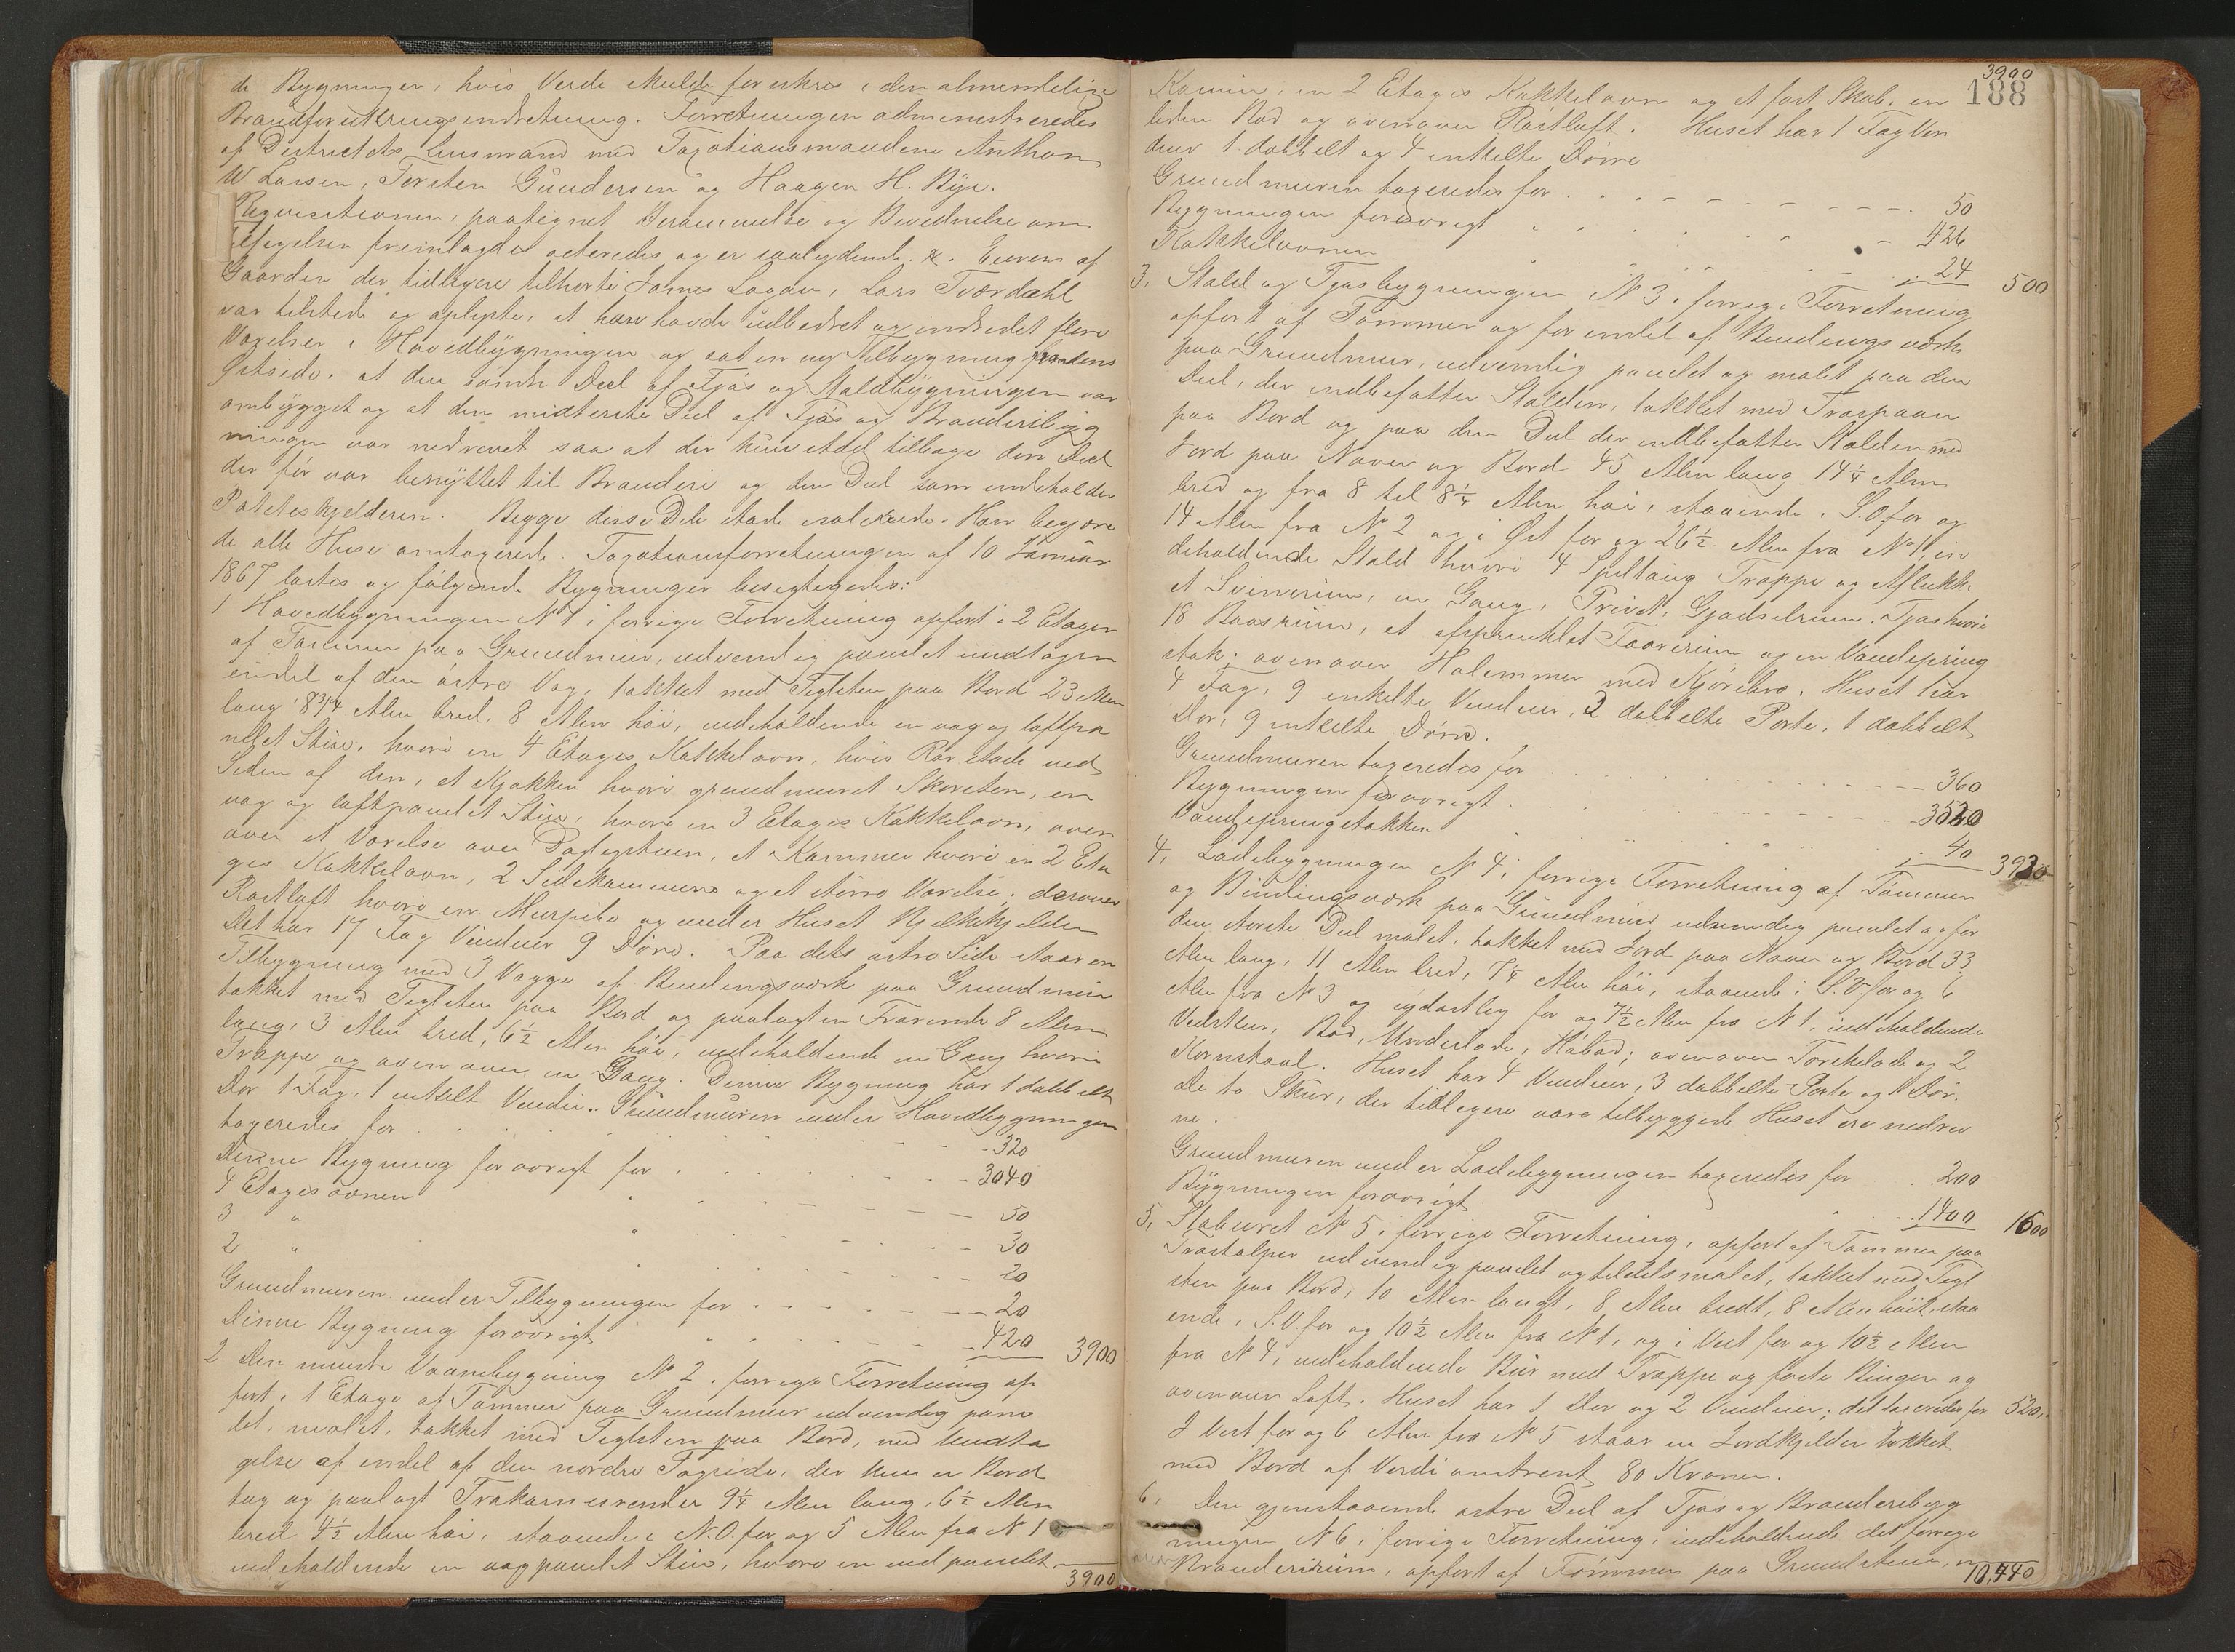 de Bygninger, hvis Verde skulde forsikres i den almindelige
Brandforsikringsindretning. Forretningen administreredes
af Districtets Lensmand med Taxationsmændene Anthon
W Larsen, Torsten Gundersen og Haagen H. Bye.
Reqvisitionen, paategnet Berammelse og Bevidnelse om
fremlagdes acteredes og er saalydende. &. Eieren af
Gaarden der tidligere tilhørte James Logan, Lars Tverdahl
var tilstede og oplyste, at han havde udbedret og indredet flere
Værelser i Hovedbygningen og sat en ny Tilbygning paa dens
Østside. at den søndre Deel af Fjøs og Staldbygningen var
ombygget og at den midterste Deel af Fjøs og Brænderibyg
ningen var nedrevet saa at der kun stod tilbage den Deel
der før var benyttet til Brænderi og den Deel som indeholder
Potetskjelderen. Begge disse Dele stode isolerede. Han begjære
de alle Huse omtaxerede. Taxationsforretningen af 10 Januar
1867 læstes og følgende Bygninger besigtigedes:
1 Hovedbygningen N 1 i forrige Forretning opført i 2 Etager
af Tømmer paa Grundmur, udvendig panelet undtagen
endel af den østre Væg, tækket med Teglsten paa Bord 23 Alen
lang 8 3/4 Alen bred, 8 Alen høi, indeholdende en væg og loftpa
nelet Stue, hvori en 4 Etages Kakkelovn, hvis Rør stode ved
Siden af den, et Kjøkken hvori grundmuret Skorsten, en
væg og loftpanelet Stue, hvori en 3 Etages Kakkelovn, oven
over et Værelse over Dagligstuen, et Kammer hvori en 2 Eta
ges Kakkelovn, 2 Sidekammere og et større Værelse; derover
Røstloft hvori en Murpibe og under Huset Kjelder
Det har 17 Fag Vinduer 9 Døre. Paa dets østre Side staar en
Tilbygning med 3 Vægge af Bindingsværk paa Grundmur
tækket med Teglsten paa Bord og paalagt en Trærende 8 Alen
lang, 3 Alen bred, 6 1/2 Alen høi, indeholdende en Gang hvori
Trappe og ovenover en Gang. Denne Bygning har 1 dobbelt
Dør 1 Fag, 1 enkelt Vindu. Grundmuren under Hovedbygningen
taxeredes for 320
Denne Bygning forøvrigt for 3040
4 Etages ovnen " 50
3 " " 30
2 " " 20
Grundmuren under Tilbygningen for 20
Denne Bygning forøvrigt " 420 3900
2 Den mindre Vaanebygning N 2 i forrige Forretning op
ført i 1 Etage af Tømmer paa Grundmur udvendig pane
let, malet, tækket med Teglsten paa Bord, med Undta
gelse af endel af den nordre Tagside, der kun er Bord
tag og paalagt Trækarnisrender 9 1/4 Alen lang, 6 1/2 Alen
bred 4 1/2 Alen høi, staaende i N.O. for og 5 Alen fra N 1
indeholdende en vægpanelet Stue, hvori en indpanelet
3900
3900
188
Kamin, en 2 Etages Kakkelovn og et fast Skab, en
liden Bod og ovenover Røstloft. Huset har 1 Fag Vin
duer 1 dobbelt og 4 enkelte Døre
Grundmuren taxeredes for 50
Bygningen forøvrigt 426
Kakkelovnen 24 500
3, Stald og Fjøsbygningen N 3 i forrige Forretning
opført af Tømmer og for endel af Bindingsværk
paa Grundmur, udvendig panelet og malet paa den
Deel, der indbefatter Stalden, tækket med Træspaan
paa Bord og paa den Deel der indbefatter Stalden med
Jord paa Næver og Bord 45 Alen lang 14 1/4 Alen
bred og fra 8 til 8 1/4 Alen høi, staaende i S.O. for og
14 Alen fra N 2 og i Øst for og 26 1/2 Alen fra N 1, in
deholdende Stald hvori 4 Spiltaug Trappe og Aflukke
et Svinerum, en Gang, Privet, Gjødselrum, Fjøs hvori
18 Baasrum, et afsprinklet Faarerum og en Vandspring
stok; ovenover Halemmer med Kjørebro. Huset har
4 Fag, 9 enkelte Vinduer, 2 dobbelte Porte, 1 dobbelt
Dør, 9 enkelte Døre.
Grundmuren taxeredes for 360
Bygningen forøvrigt 3520
Vandspringstokken 40 3920
4, Ladebygningen N 4 i forrige Forretning af Tømmer
og Bindingsværk paa Grundmur udvendig panelet og for
den største Deel malet, tækket med Jord paa Næver og Bord 33
Alen lang, 11 Alen bred, 7 1/4 Alen høi, staaende i S.V. for og 6
Alen fra N 3 og sydøstlig for og 7 1/2 Alen fra N 1, indeholdende
Vedskur, Bod, Underlade, Høbod; ovenover Tørskelade og 2
Kornstaal. Huset har 4 Vinduer, 3 dobbelte Porte og 1 Dør.
De to Skur, der tidligere vare tilbyggede Huset ere nedrev
ne.
Grundmuren under Ladebygningen taxeredes for 200
Bygningen forøvrigt 1400 1600
5, Staburet N 5 i forrige Forretning, opført af Tømmer paa
Træstolper udvendig panelet og tildels malet, tækket med Tegl
sten paa Bord, 10 Alen langt, 8 Alen bredt, 8 Alen høit, staa
ende i S.V. for og 10 1/2 Alen fra N 1, og i Vest for og 10 1/2 Alen
fra N 4, indeholdende Bur med Trappe og faste Binger og
ovenover Loft. Huset har 1 Dør og 2 Vinduer; det taxeredes for 520,
I Vest for og 6 Alen fra N 5 staar en Jordkjelder tækket
med Bord af Verdi omtrent 80 Kroner.
6, Den gjenstaaende østre Deel af Fjøs og Brænderibyg
ningen N 6 i forrige Forretning, indeholdende det forrige
Brænderirum, opført af Tømmer paa Grundstene,
10,440